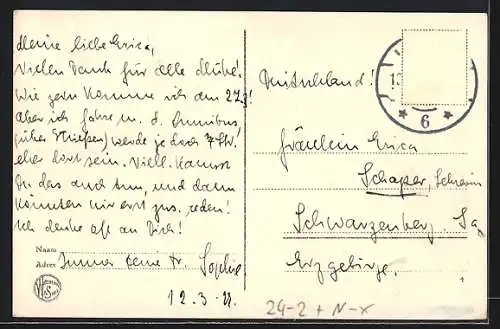 Meine liebe Erica,
Vielen Dank für alle Mühe!
Wie gern komme ich am 27.3!
Aber ich fahre m. d. Omnibus
(über Meißen) werde ja doch 7 Std.
eher dort sein. Viell. kannst
Du das auch tun, und dann
könnten wir erst zus. reden!
Ich denke oft an Dich!
Naam Immer Deine tr. Sophie
Adres
12.3.
24-2 + N-x
Deutschland!
6
Fräulein Erica
Schaper,
Schwarzenberg, Sa
Erzgebirge.